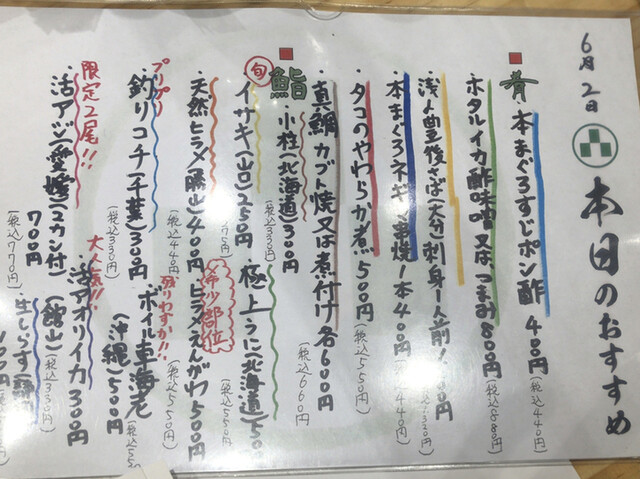 6月2日
本日のおすすめ
肴
本まぐろすじポン酢 400円
(税込440円)
ホタルイカ酢味噌又は、つまみ 800円
(税込880円)
浅〆豊後さば(大分)刺身一人前
本まぐろネギま串焼1本400円
(税込440円)
タコのやわらか煮 500円
(税込550円)
真鯛カブト焼又は煮付け各600円
(税込660円)
鮨
小柱(北海道)300円
(税込330円)
極上うに(北海道)
旬
イサキ(山口)250円
希少部位
ヒラメえんがわ500円
(税込550円)
天然ヒラメ(勝山)400円
(税込440円)
残りわずか!!
ボイル車海老
(沖縄)500円
プリプリ
釣りコチ(千葉)300円
(税込330円)
大人気!!
活アオリイカ
(館山) 300円
(税込330円)
限定2尾!!
活アジ(愛媛)(2カン付)
700円
(税込770円)
生しらす